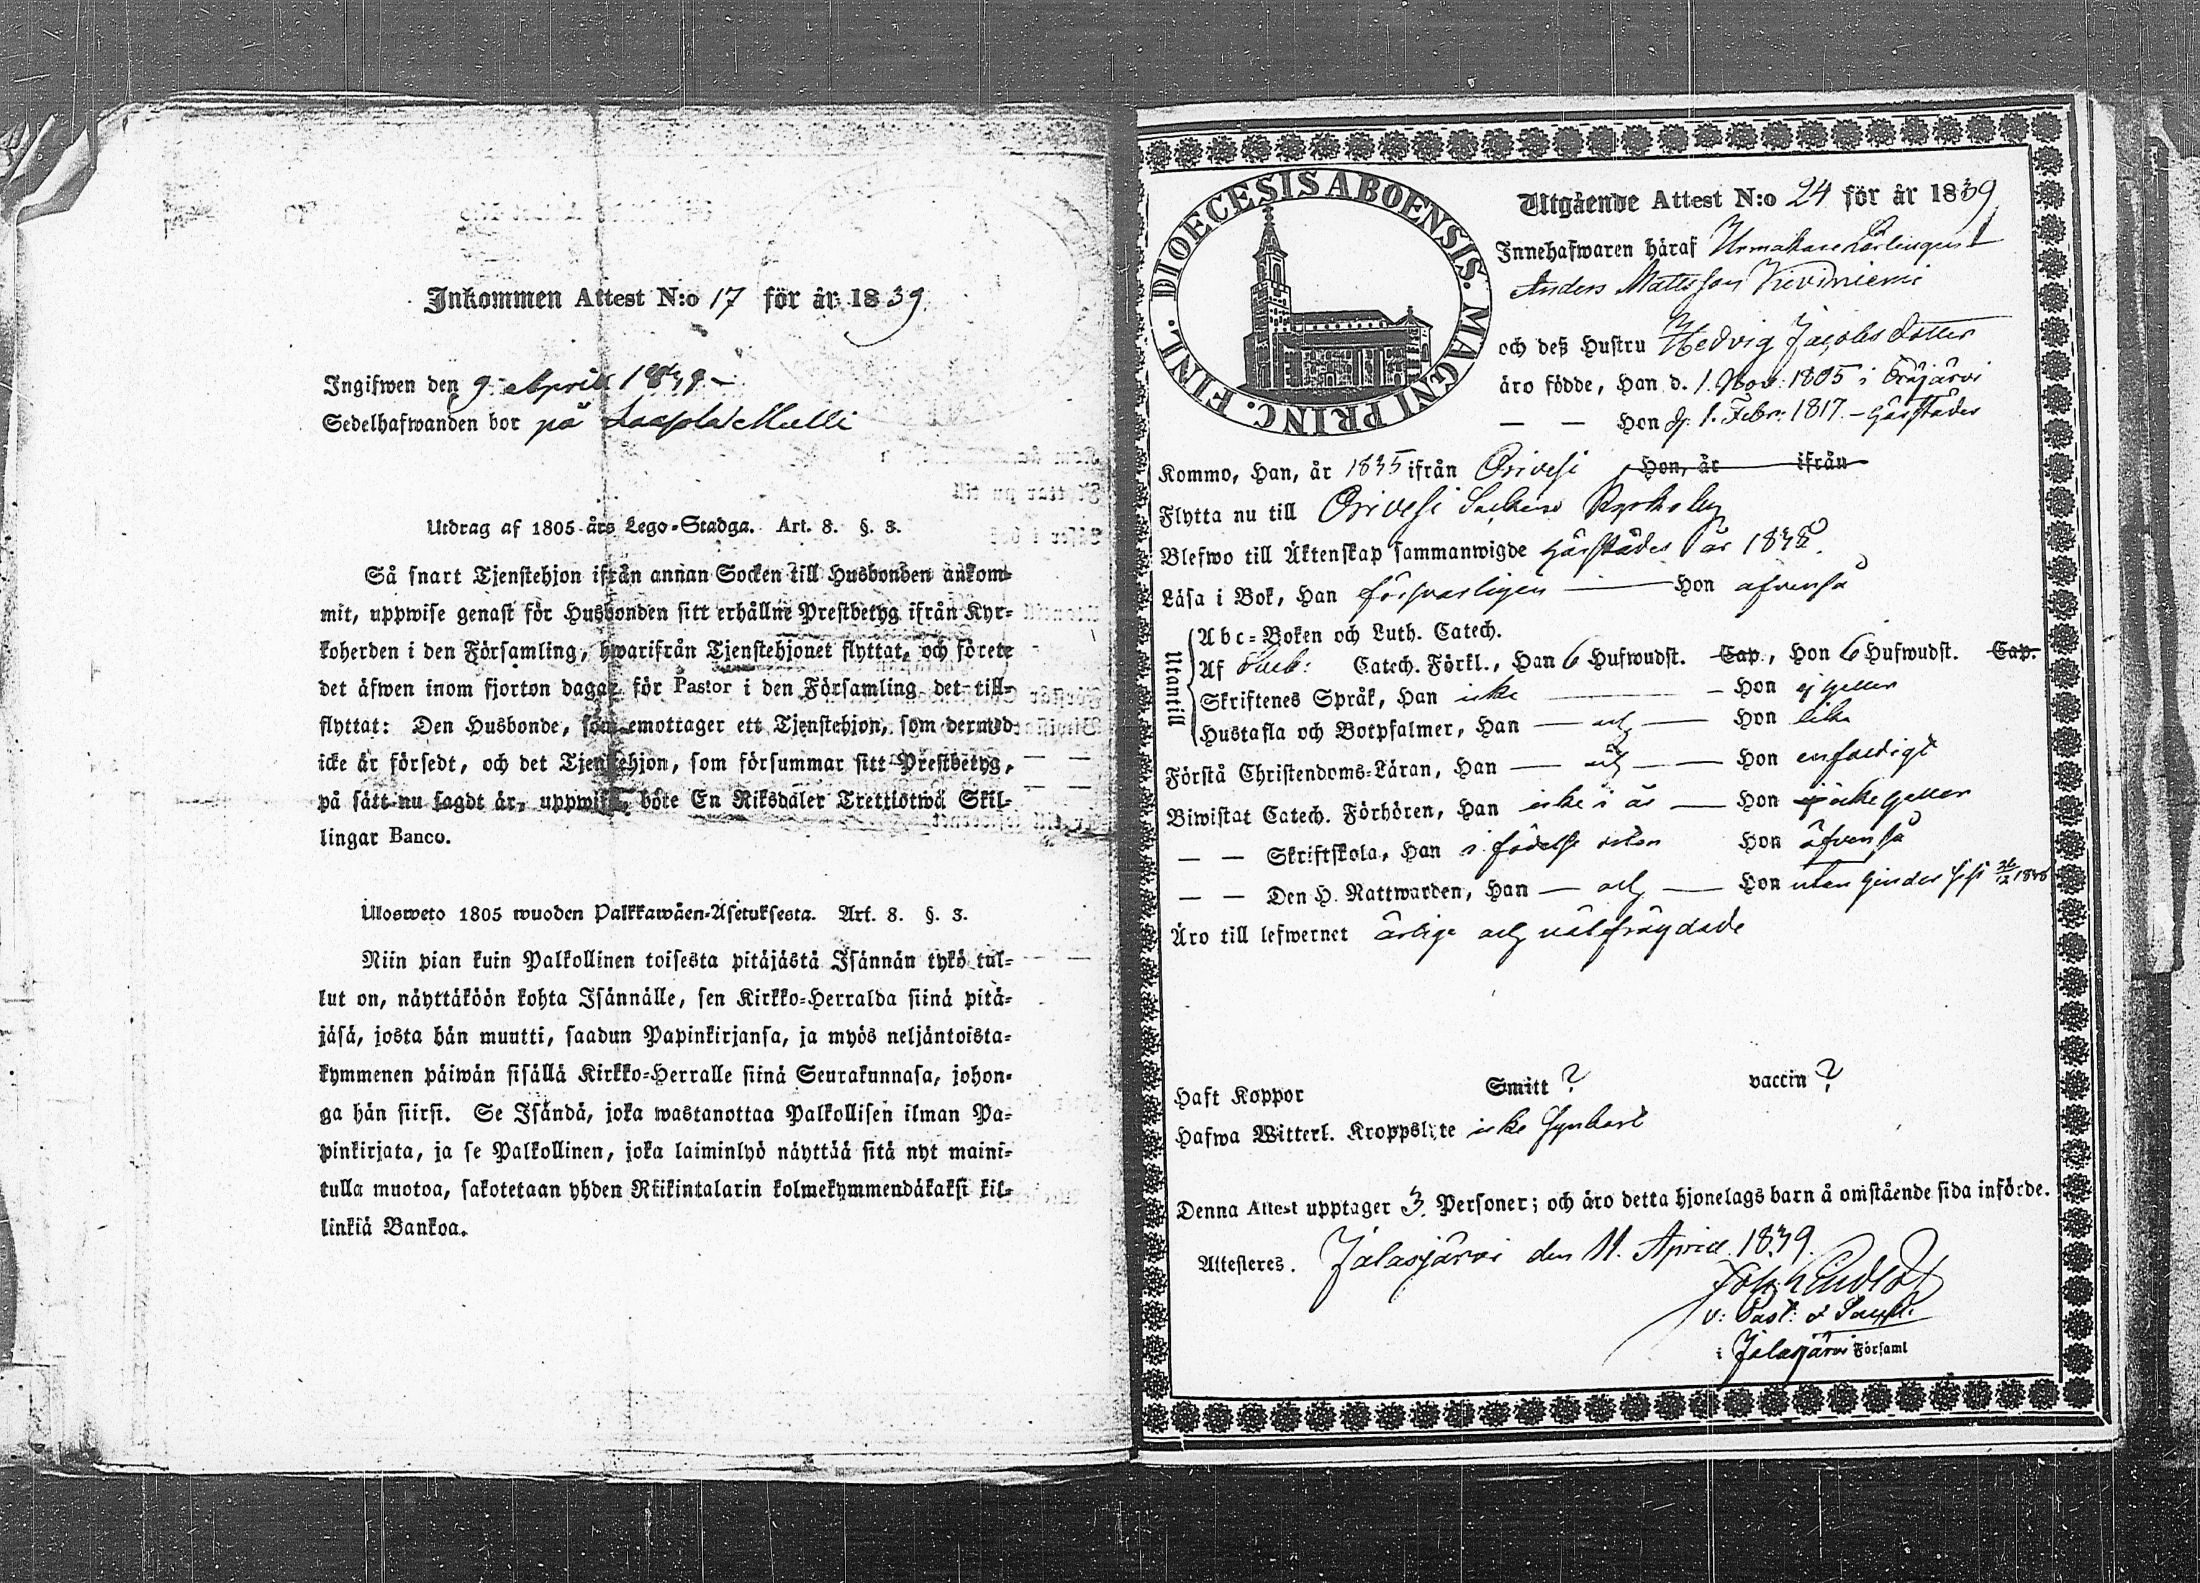 Inkommen Attest N:o 17 för år 1839
Ingifwen den 9 April 1839
Sedelhafwanden bor på
Utdrag af 1805 års Lego-Stadga. Art. 8. §. 3.
Så snart Tjenstehjon ifrån annan Socken till Husbonden ankom-
mit, uppwise genast för Husbonden sitt erhållne Prestbetyg ifrån Kyr-
koherden i den Församling, hwarifrån Tjenstehjonet flyttat, och förete
det äfwen inom fjorton dagar för Pastor i den Församling det till-
flyttat: Den Husbonde, som emottager ett Tjenstehjon, som dermed
icke är försedt, och det Tjenstehjon, som försummar sitt Prestbetyg,
på sätt nu sagdt är, uppwisa, böte En Riksdaler Trettiotwå Skil-
lingar Banco.
Ulosweto 1805 wuoden Palkkawäen-Asetuksesta. Art. 8. §. 3.
Niin pian kuin Palkollinen toisesta pitäjästä Isännän tykö tul-
lut on, näyttäköön kohta Isännälle, sen Kirkko-Herralda siinä pitä-
jäsä, josta hän muutti, saadun Papinkirjansa, ja myös neljäntoista-
kymmenen päiwän sisällä Kirkko-Herralle siinä Seurakunnasa, johon-
ga hän siirsi. Se Isändä, joka wastanottaa Palkollisen ilman Pa-
pinkirjata, ja se Palkollinen, joka laiminlyö näyttää sitä nyt maini-
tulla muotoa, sakotetaan yhden Riikintalarin kolmekymmendäkaksi kil-
linkiä Bankoa.
DIOECESIS ABOENSIS. MAGNI PRINC. FINL.
Utgående Attest N:o 24 för år 1839
Innehafwaren häraf Urmakare Lärlingen
Anders Mattsson Kiviniemi
och deß Hustru Hedvig Jacobsdotter
äro födde, Han d. 1. Nov. 1805 i
— — Hon d. 1. Febr. 1817 – härstädes
Kommo, Han, år 1835 ifrån Orivesi Hon, år ifrån
Flytta nu till Orivesi Sockens Kyrkoby
Blefwo till Äktenskap sammanwigde härstädes år 1838.
Läsa i Bok, Han försvarligen — Hon äfvenså
Utantill
Abc-Boken och Luth. Catech.
Af Catech. Förkl., Han 6 Hufwudst. Cap., Hon 6 Hufwudst. Cap.
Skriftenes Språk, Han icke — Hon ej heller
Hustafla och Botpsalmer, Han — — Hon lika
Förstå Christendoms-Läran, Han — — Hon enfaldigt
Biwistat Catech. Förhören, Han icke i år — Hon icke heller
— — Skriftskola, Han i födelse orten Hon äfvenså
— — Den H. Nattwarden, Han — — Hon utan hinder
Äro till lefwernet ärlige och välfrägdade
Haft Koppor Smitt ? vaccin ?
Hafwa Witterl. Kroppslyte icke synbart
Denna Attest upptager 3 Personer; och äro detta hjonelags barn å omstående sida införde.
Attesteres. Jalasjärvi den 11. April 1839.
v: Past:
i Jalasjärvi Församl